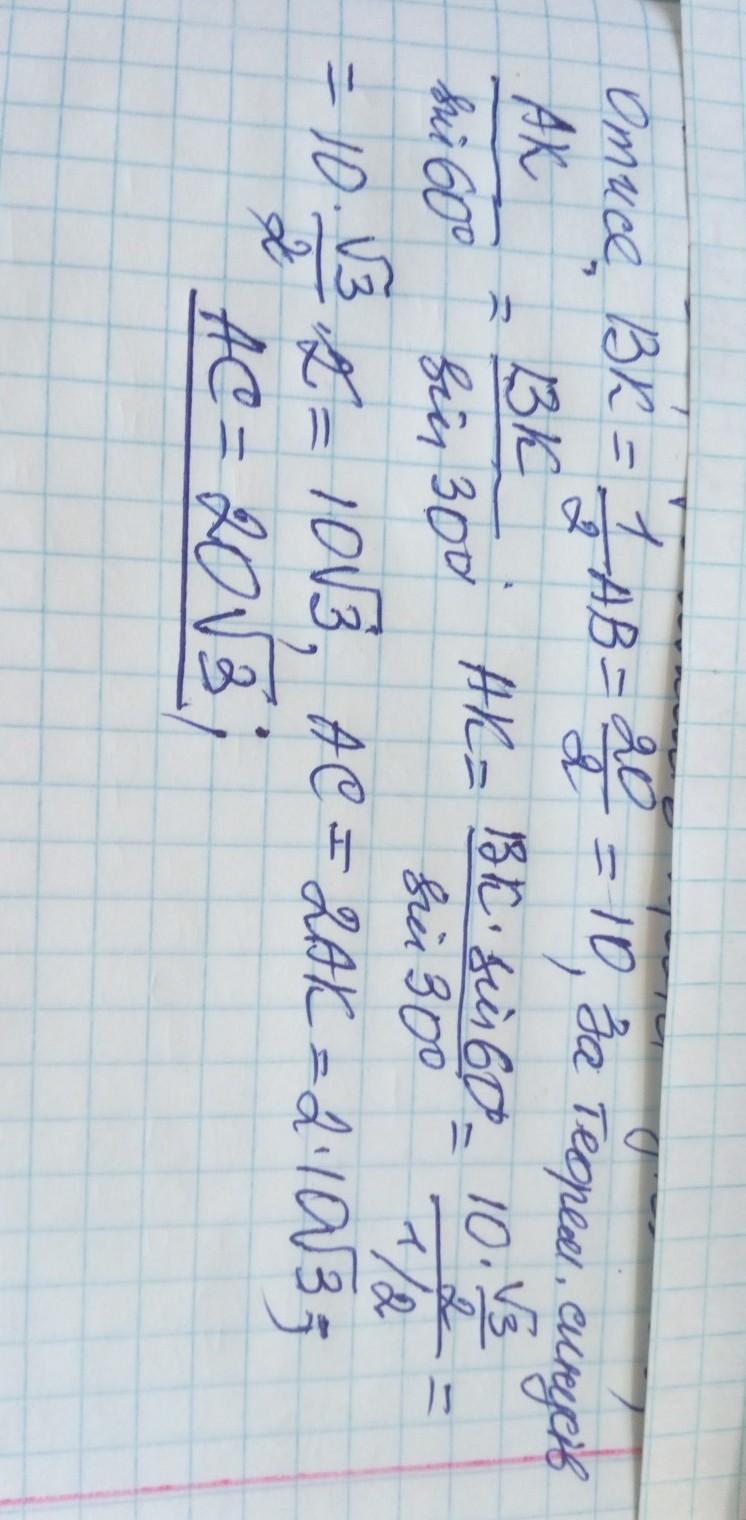 Отже, BK = 1/2 AB = 20/2 = 10, За теорем. синусів
AK/sin 60° = BK/sin 30°. AK = BK · sin 60°/sin 30° = 10 · √3/2/1/2 =
= 10 · √3/2 · 2 = 10√3, AC = 2AK = 2 · 10√3;
AC = 20√3;